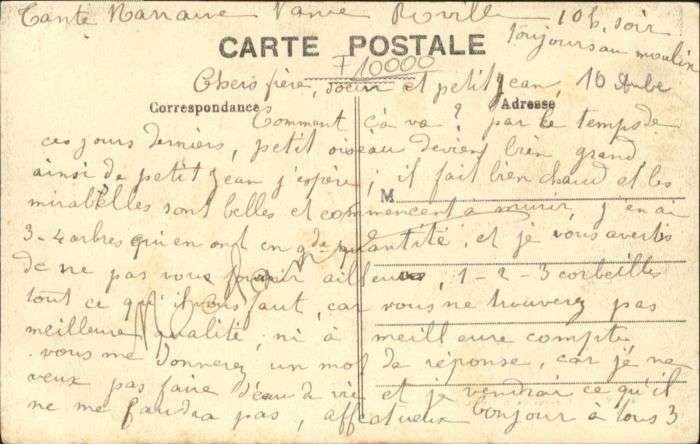 Tante 10 h. soir
toujours au moulin
CARTE POSTALE
F 10000
Chers frère, soeur et petit jean, 10
Correspondance Adresse
Comment ça va ? par le temps de
ces jours derniers, petit oiseau devient bien grand,
ainsi de petit jean j'espère; il fait bien chaud et les
M
mirabelles sont belles et commencent à murir, j'en ai
3-4 arbres qui en ont en gde quantité, et je vous avertis
de ne pas vous fournir ailleurs, 1-2-3 corbeilles
tout ce qu'il vous faut, car vous ne trouverez pas
meilleure qualité, ni à meilleure compte,
vous me donnerez un mot de réponse, car je ne
veux pas faire d'eau de vie et je vendrai ce qu'il
ne me faudra pas, affectueux bonjour à tous 3